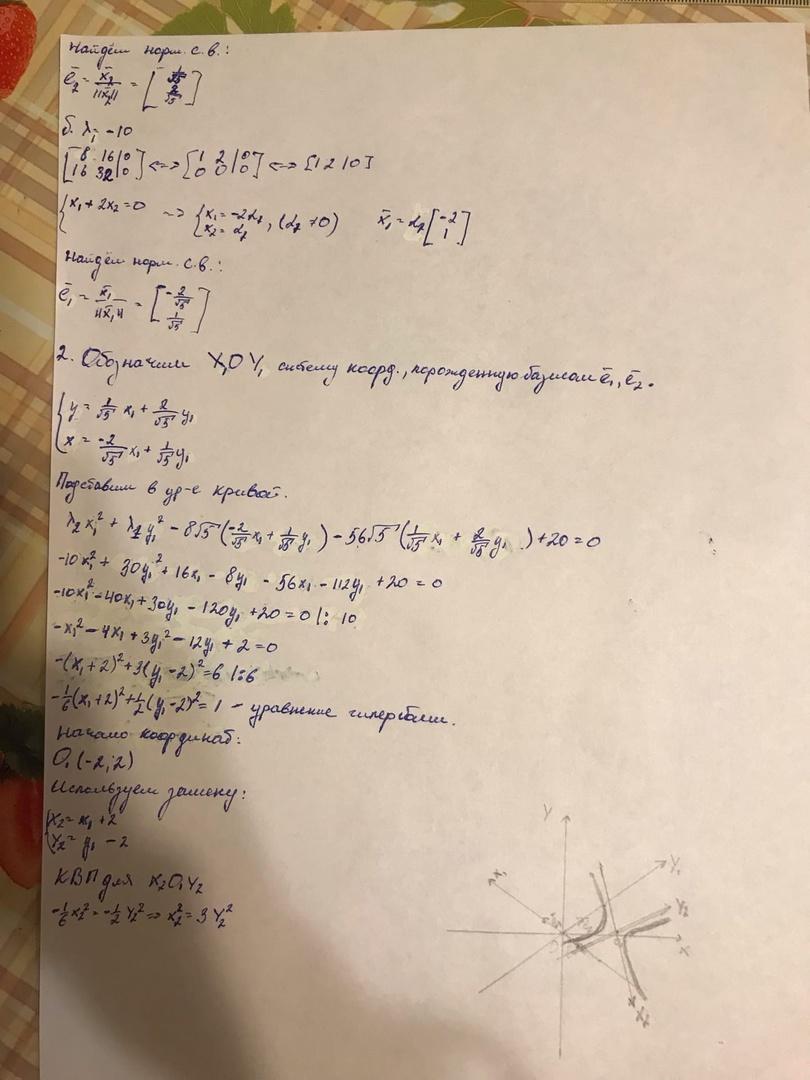 Найдём норм. с.в.:
ē₂ = x̄₂/||x̄₂|| = [1/√5 2/√5]
б. λ₁ = -10
[8 16|0 16 32|0] <=> [1 2|0 0 0|0] <=> [1 2 |0]
{x₁ + 2x₂ = 0 ~> {x₁ = -2α₂ x₂ = α₂, (α₂ ≠ 0) x̄₁ = α₂[-2 1]
Найдём норм. с.в.:
ē₁ = x̄₁/||x̄₁|| = [-2/√5 1/√5]
2. Обозначим X₁OY₁ систему коорд., порожденную базисом ē₁, ē₂.
{y = 1/√5 x₁ + 2/√5 y₁
x = -2/√5 x₁ + 1/√5 y₁
Подставим в ур-е кривой.
λ₂x₁² + λ₁y₁² - 8√5(-2/√5 x₁ + 1/√5 y₁) - 56√5(1/√5 x₁ + 2/√5 y₁) + 20 = 0
-10x₁² + 30y₁² + 16x₁ - 8y₁ - 56x₁ - 112y₁ + 20 = 0
-10x₁² - 40x₁ + 30y₁ - 120y₁ + 20 = 0 |: 10
-x₁² - 4x₁ + 3y₁² - 12y₁ + 2 = 0
-(x₁+2)² + 3(y₁-2)² = 6 |:6
-1/6(x₁+2)² + 1/2(y₁-2)² = 1 - уравнение гиперболы.
Начало координат:
O₁(-2; 2)
Используем замену:
{x₂ = x₁ + 2
y₂ = y₁ - 2
КВП для X₂O₁Y₂
-1/6 x₂² = -1/2 y₂² => x₂² = 3y₂²
Y
Y₁
X₁
Y₂
X
X₂